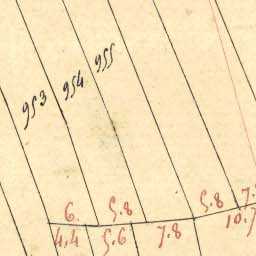 953 954 955
6. 5.8 5.8
4.4 5.6 7.8 10.7